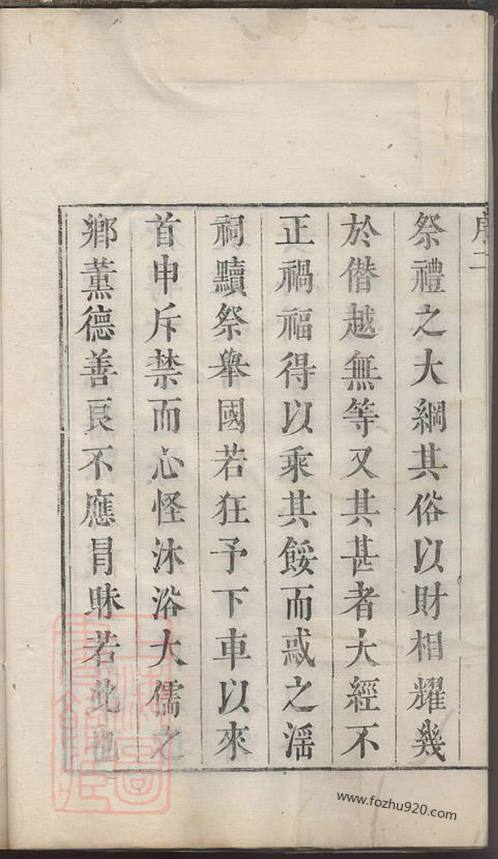 序二
祭禮之大綱其俗以財相耀幾
於僭越無等又其甚者大經不
正禍福得以乘其餒而惑之淫
祠黷祭舉國若狂予下車以來
首申斥禁而心怪沐浴大儒之
鄉薰德善良不應冐昧若此也
www.fozhu920.com